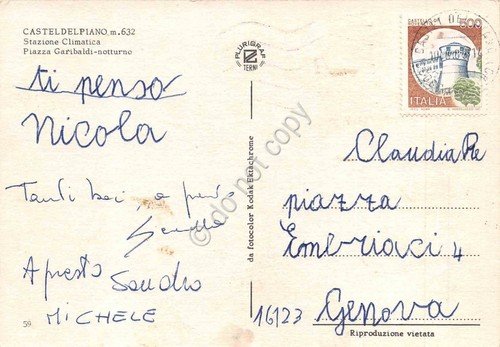 CASTELDELPIANO m. 632
Stazione Climatica
Piazza Garibaldi-notturno
ti penso
Nicola
Tanti baci, a presto
A presto Sandro
MICHELE
59
PLURIGRAF
TERNI
da fotocolor Kodak Ektachrome
do not copy
500
ITALIA
Claudia Re
piazza
Embriaci 4
16123 Genova
Riproduzione vietata